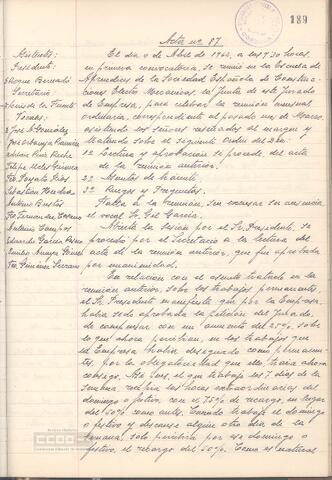 189
Acta nº 87
Asistentes:
Presidente:
Secretario
Vocales:
José González
Antonio Bustos
Antonio Campos
El día 6 de Abril de 1962, a las 7'30 horas
en primera convocatoria, se reunió en la Escuela de
Aprendices de la Sociedad Española de Construc-
ciones Electro Mecánicas, la Junta de este Jurado
de Empresa, para celebrar la reunión mensual
ordinaria, correspondiente al pasado mes de Marzo,
asistiendo los señores reseñados al margen y
tratando sobre el siguiente Orden del Día:
1º Lectura y aprobación si procede del acta
de la reunión anterior.
2º Asuntos de trámite
3º Ruegos y Preguntas.
Falta a la reunión, sin excusar su ausencia
el vocal Sr. Gil García.
Abierta la sesión por el Sr. Presidente, se
procedió por el Secretario a la lectura del
acta de la reunión anterior, que fue aprobada
por unanimidad.
En relación con el asunto tratado en la
reunión anterior, sobre los trabajos permanentes,
el Sr. Presidente manifiesta que por la Empresa
había sido aprobada la petición del Jurado,
de compensar con un aumento del 25% sobre
lo que ahora percibían, en los trabajos que
la Empresa había designado como permanen-
tes, por la obligatoriedad que ello traía ahora
consigo. Así pues, el que trabaje los 7 días de la
semana, recibirá las horas extraordinarias del
domingo o festivo, con el 75% de recargo, en lugar
del 50% como antes. Cuando trabaje el domingo
o festivo y descanse algún otro día de la
semana, solo percibirá por ese domingo o
festivo, el recargo del 50%. Como es natural